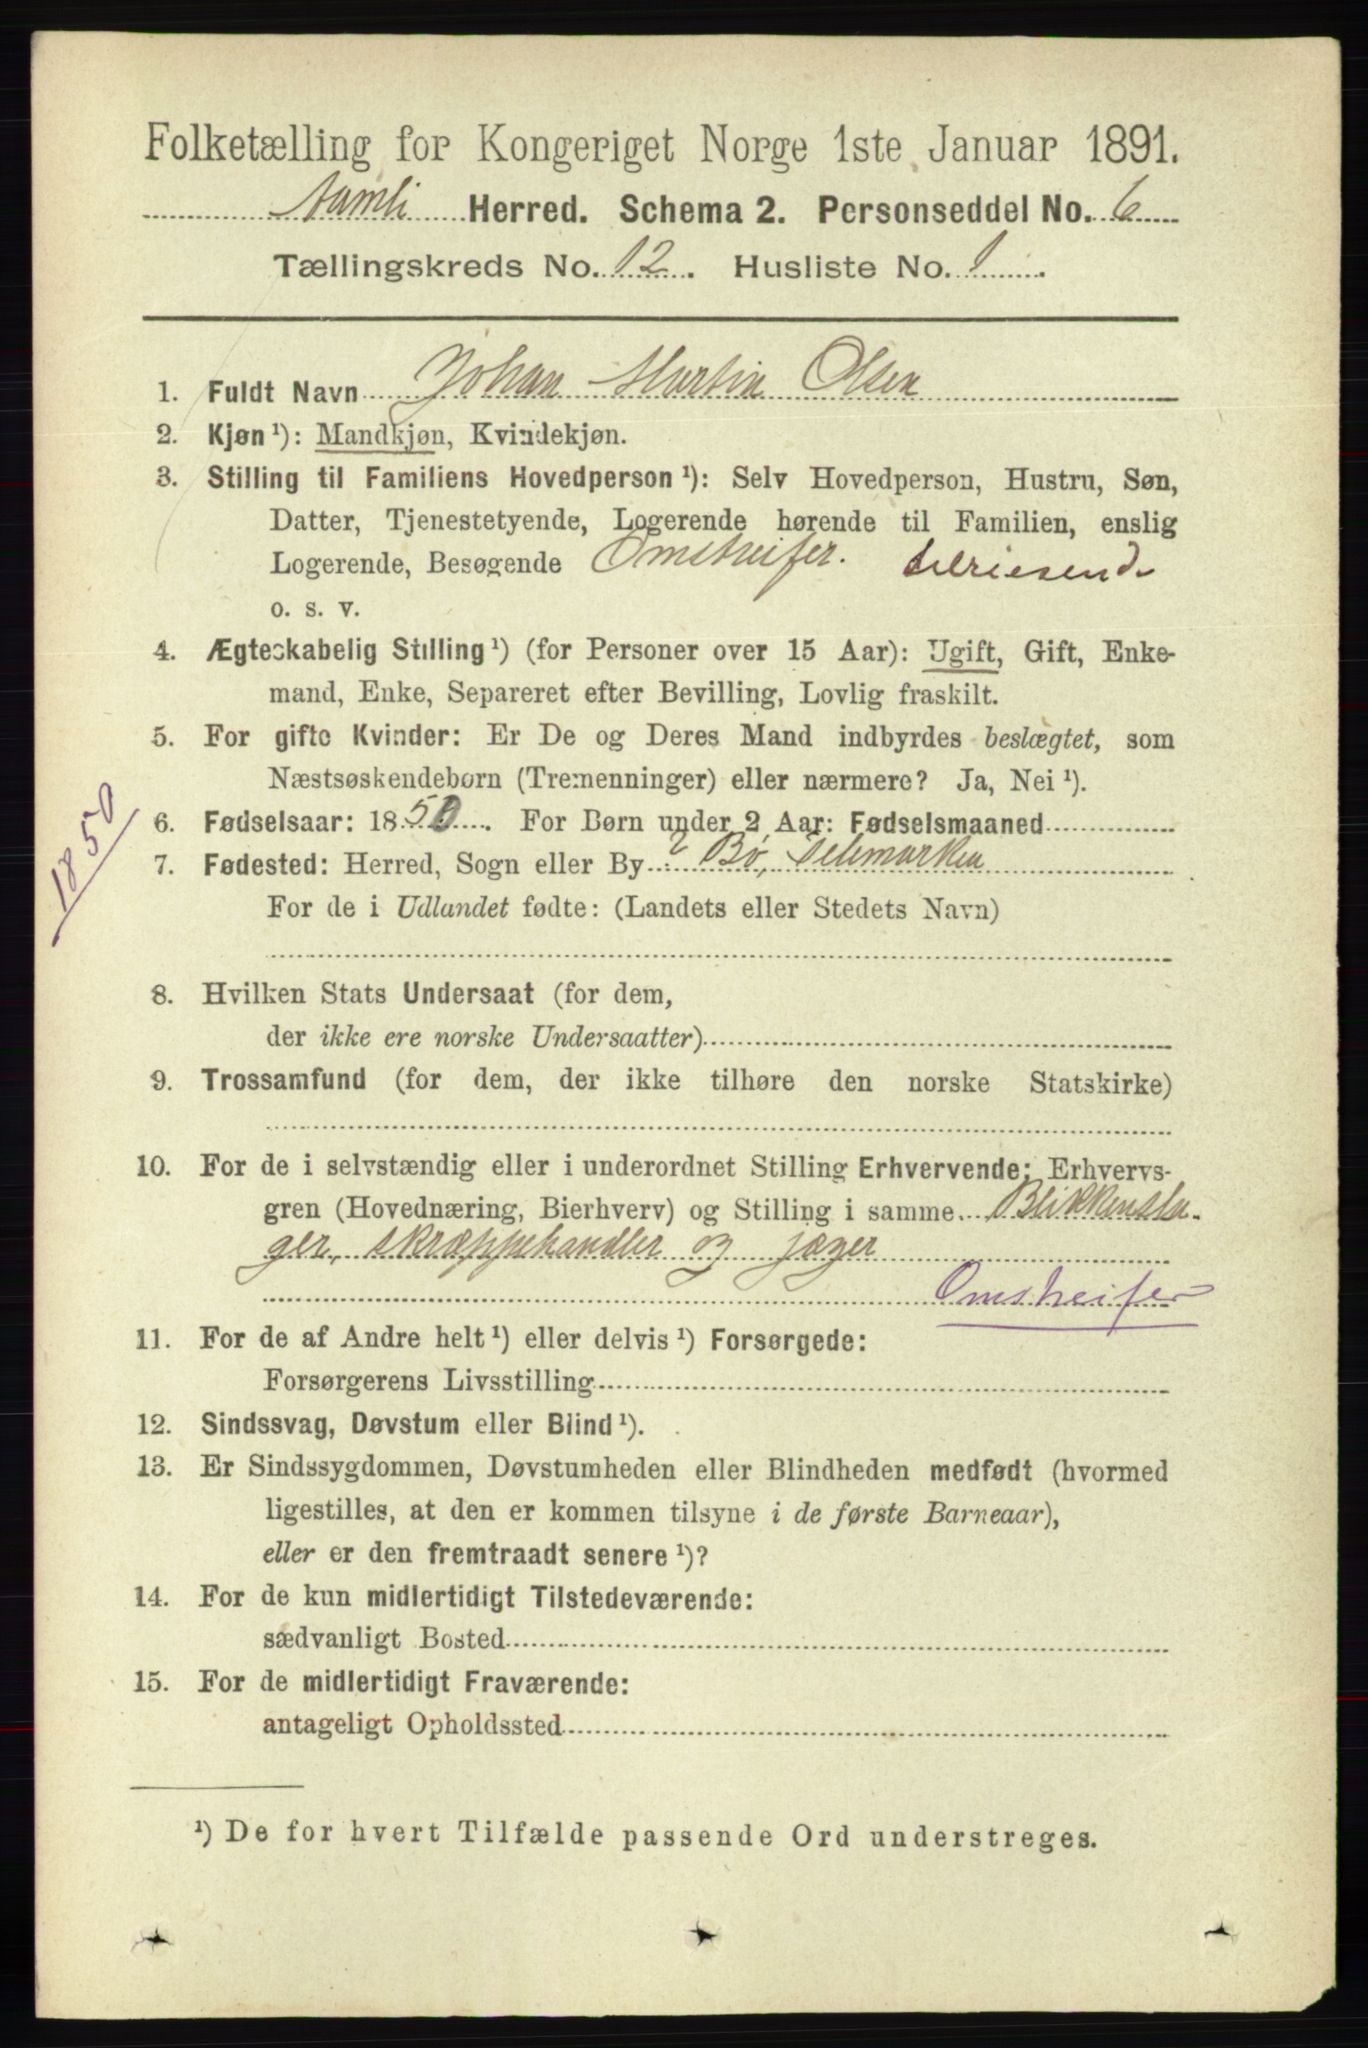 Folketælling for Kongeriget Norge 1ste Januar 1891.
Aamli Herred. Schema 2. Personseddel No. 6
Tællingskreds No. 12. Husliste No. 1.
1. Fuldt Navn Johan Martin Olsen
2. Kjøn ¹): Mandkjøn, Kvindekjøn.
3. Stilling til Familiens Hovedperson ¹): Selv Hovedperson, Hustru, Søn,
Datter, Tjenestetyende, Logerende hørende til Familien, enslig
Logerende, Besøgende Omstreifer.
o. s. v.
4. Ægteskabelig Stilling ¹) (for Personer over 15 Aar): Ugift, Gift, Enke-
mand, Enke, Separeret efter Bevilling, Lovlig fraskilt.
5. For gifte Kvinder: Er De og Deres Mand indbyrdes beslægtet, som
Næstsøskendebørn (Tremenninger) eller nærmere? Ja, Nei ¹).
1850
6. Fødselsaar: 1850. For Børn under 2 Aar: Fødselsmaaned
7. Fødested: Herred, Sogn eller By ? Bø, Telemarken
For de i Udlandet fødte: (Landets eller Stedets Navn)
8. Hvilken Stats Undersaat (for dem,
der ikke ere norske Undersaatter)
9. Trossamfund (for dem, der ikke tilhøre den norske Statskirke)
10. For de i selvstændig eller i underordnet Stilling Erhvervende: Erhvervs-
gren (Hovednæring, Bierhverv) og Stilling i samme Blikkensla-
ger, skræppehandler og jæger
Omstreifer
11. For de af Andre helt ¹) eller delvis ¹) Forsørgede:
Forsørgerens Livsstilling
12. Sindssvag, Døvstum eller Blind ¹).
13. Er Sindssygdommen, Døvstumheden eller Blindheden medfødt (hvormed
ligestilles, at den er kommen tilsyne i de første Barneaar),
eller er den fremtraadt senere ¹)?
14. For de kun midlertidigt Tilstedeværende:
sædvanligt Bosted
15. For de midlertidigt Fraværende:
antageligt Opholdssted
¹) De for hvert Tilfælde passende Ord understreges.